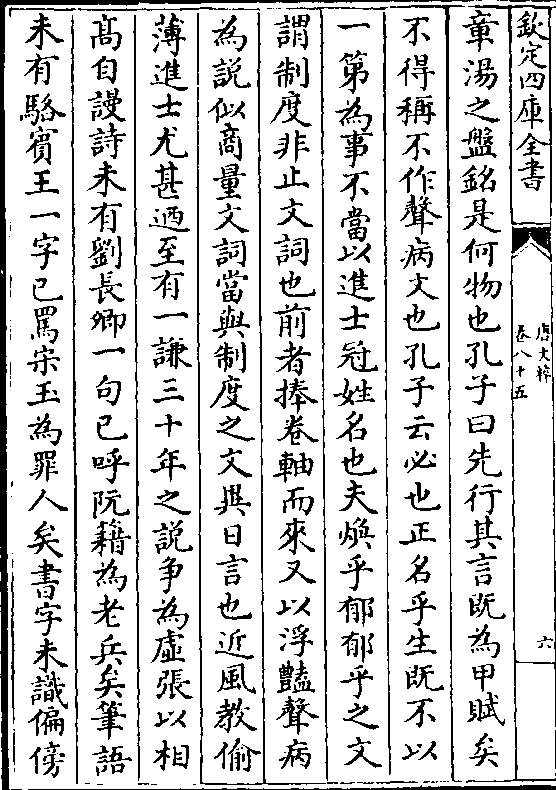 欽定四庫全書
唐文粹
卷八十五
六
章湯之盤銘是何物也孔子曰先行其言既為甲賦矣
不得稱不作聲病文也孔子云必也正名乎生既不以
一第為事不當以進士冠姓名也夫煥乎郁郁乎之文
謂制度非止文詞也前者捧卷軸而來又以浮豔聲病
為說似商量文詞當與制度之文異日言也近風教偷
薄進士尤甚迺至有一謙三十年之說爭為虛張以相
髙自謾詩未有劉長卿一句已呼阮籍為老兵矣筆語
未有駱賓王一字已罵宋玉為罪人矣書字未識偏傍